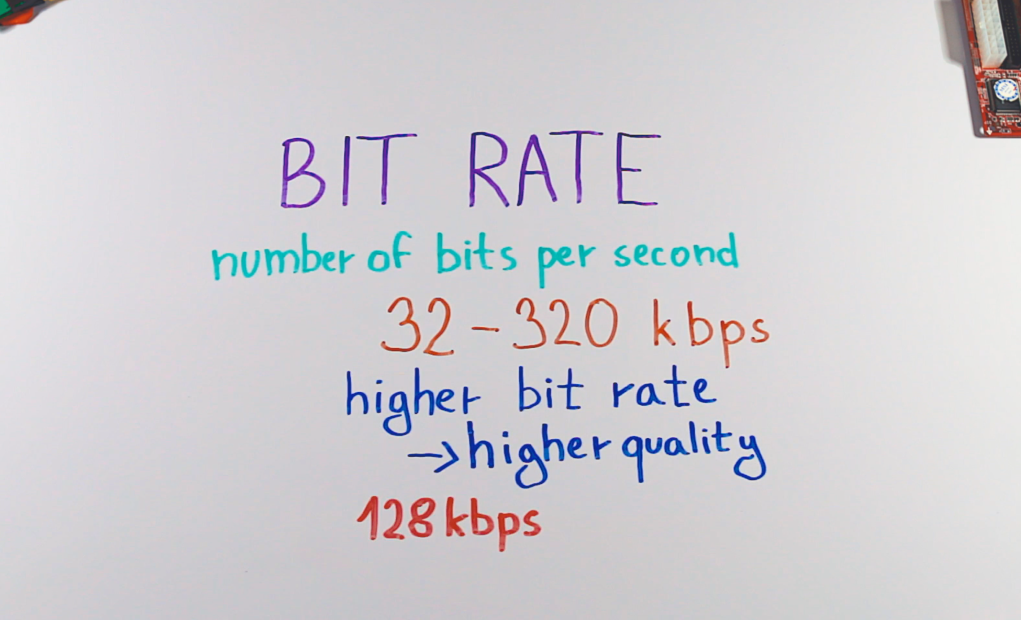 BIT RATE
number of bits per second
32 - 320 kbps
higher bit rate
→ higher quality
128 kbps